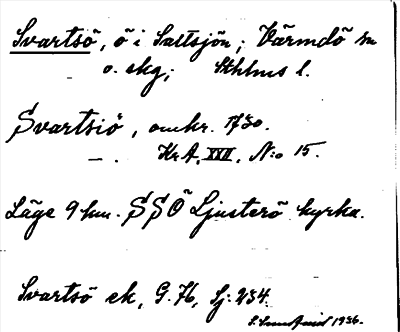 Svartsö, ö i Saltsjön; Värmdö sn
o. skg; Sthlms l.
Svartsiö, omkr. 1730.
Kr.A. XXII. N:o 15.
Läge 9 km. SSO Ljusterö kyrka.
Svartsö ek, G. 76, Lj. 234.
1936.